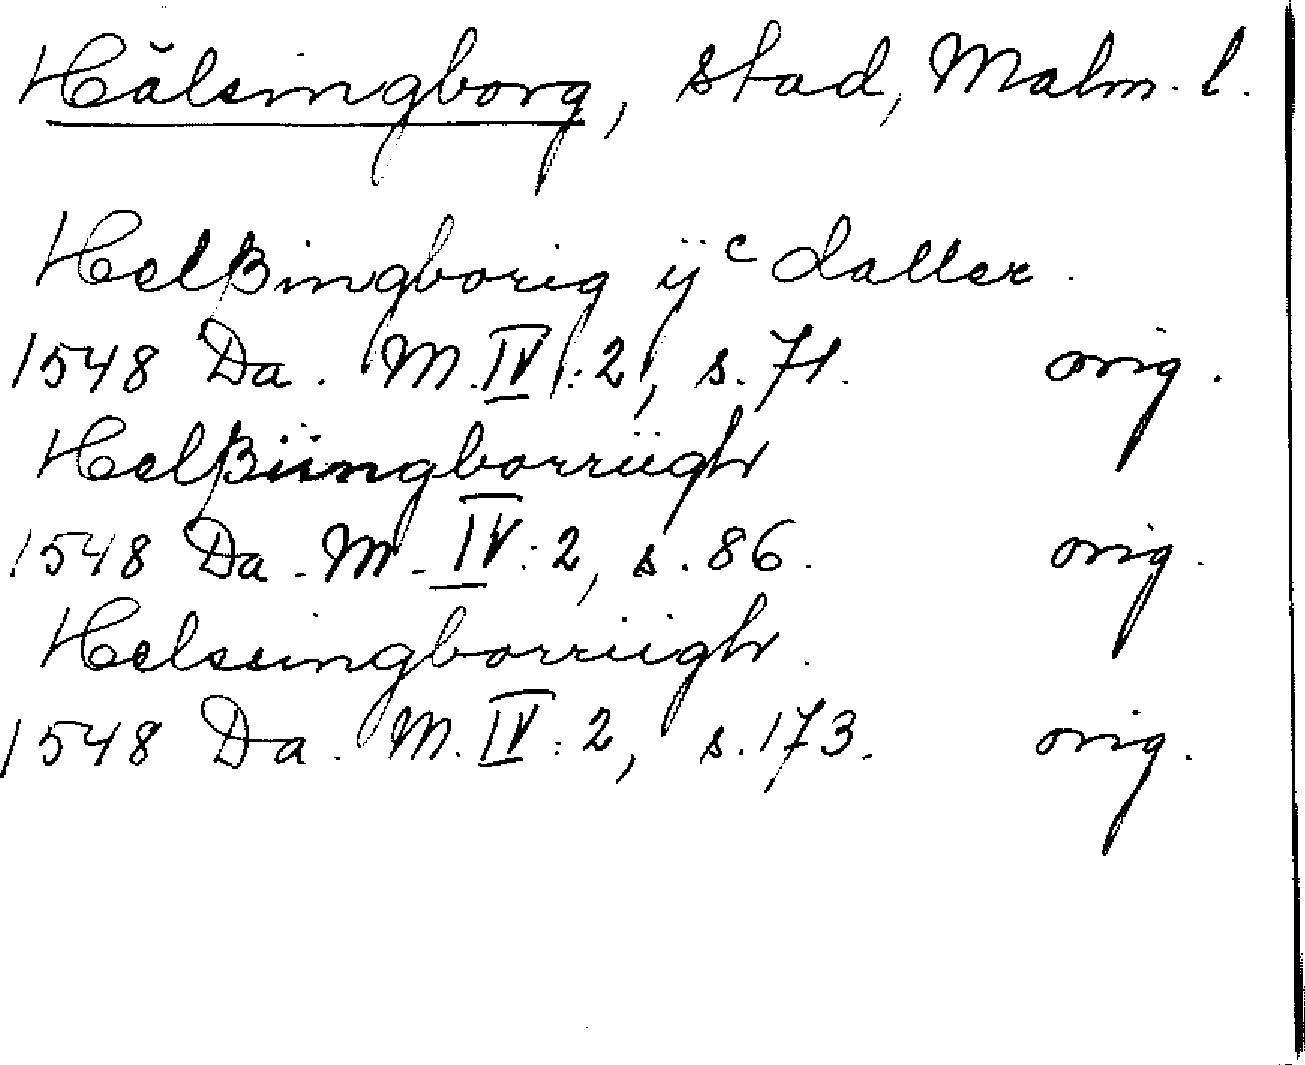 Hälsingborg, stad, Malm. l.
Helßingborig ij c daller.
1548 Da. M. IV: 2, s. 71. orig.
Helßiingborriigh
1548 Da. M. IV: 2, s. 86. orig.
Helssingborriigh.
1548 Da. M. IV: 2, s. 173. orig.